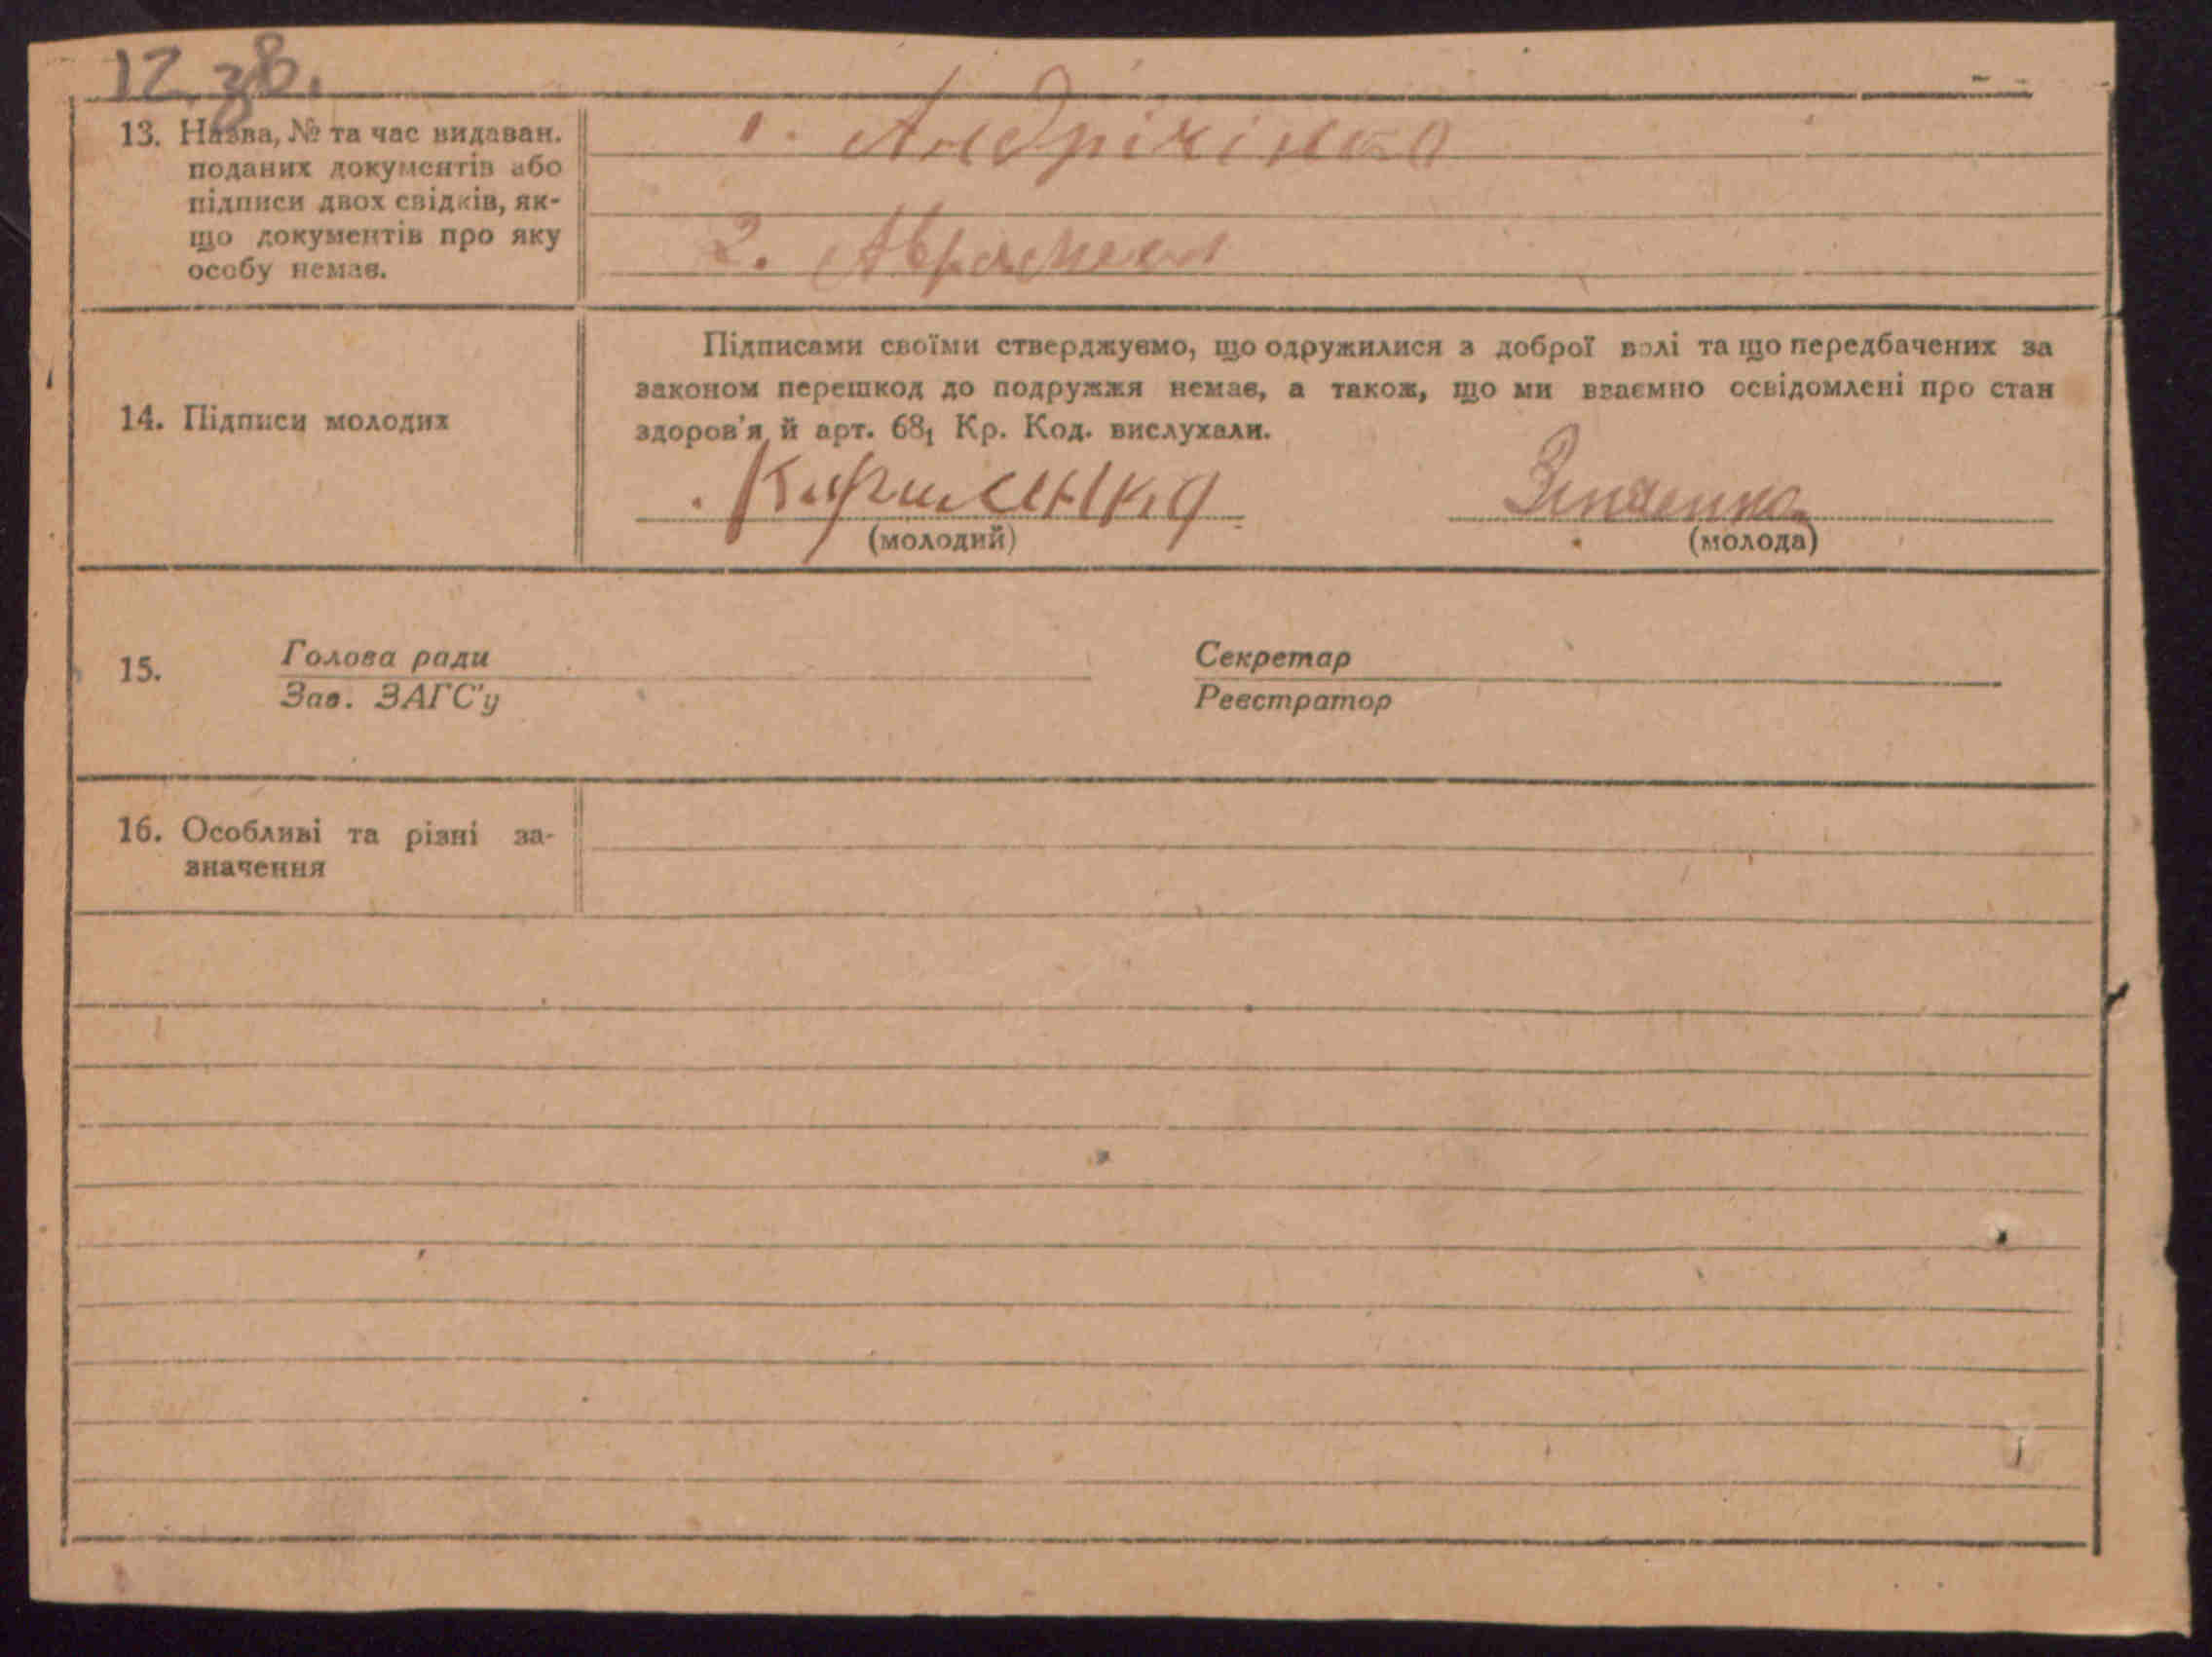 12 зв.
13. Назва, № та час видаван.
поданих документів або
підписи двох свідків, як-
що документів про яку
особу немає.
1.
2.
14. Підписи молодих
Підписами своїми стверджуємо, що одружилися з доброї волі та що передбачених за
законом перешкод до подружжя немає, а також, що ми взаємно освідомлені про стан
здоров'я й арт. 68₁ Кр. Код. вислухали.
Зінченко
(молодий) (молода)
15. Голова ради Секретар
Зав. ЗАГС'у Реєстратор
16. Особливі та різні за-
значення